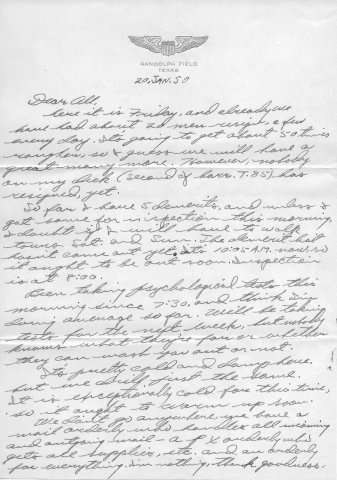 RANDOLPH FIELD
TEXAS
20, JAN. 50
Dear All,
here it is Friday, and already we
have had about 20 men resign, a few
every day. It's going to get about 50 this
rougher, so I guess we will have a
great many more. However, nobody
on my deck (second of barr. T-85) has
resigned, yet.
So far I have 5 demerits, and unless I
get some for inspection this morning,
I doubt if I will have to walk
tours Sat. and Sun. The demerit list
hasn't come out yet. It's A.M. now, so
it ought to be out soon. Inspection
is at 8:00.
Been taking psychological tests this
morning since 7:30, and think I'm
doing average so far. We'll be taking
tests for the next week, but nobody
knows what they're for or whether
they can wash you out or not.
It's pretty cold and damp here,
but we drill just the same.
It is exceptionally cold for this time,
so it ought to warm up soon.
We don't go anywhere, we have a
mail orderly who handles all incoming
and outgoing mail - a P X orderly who
gets all supplies, etc. and an orderly
for everything. I'm nothing, thank goodness.